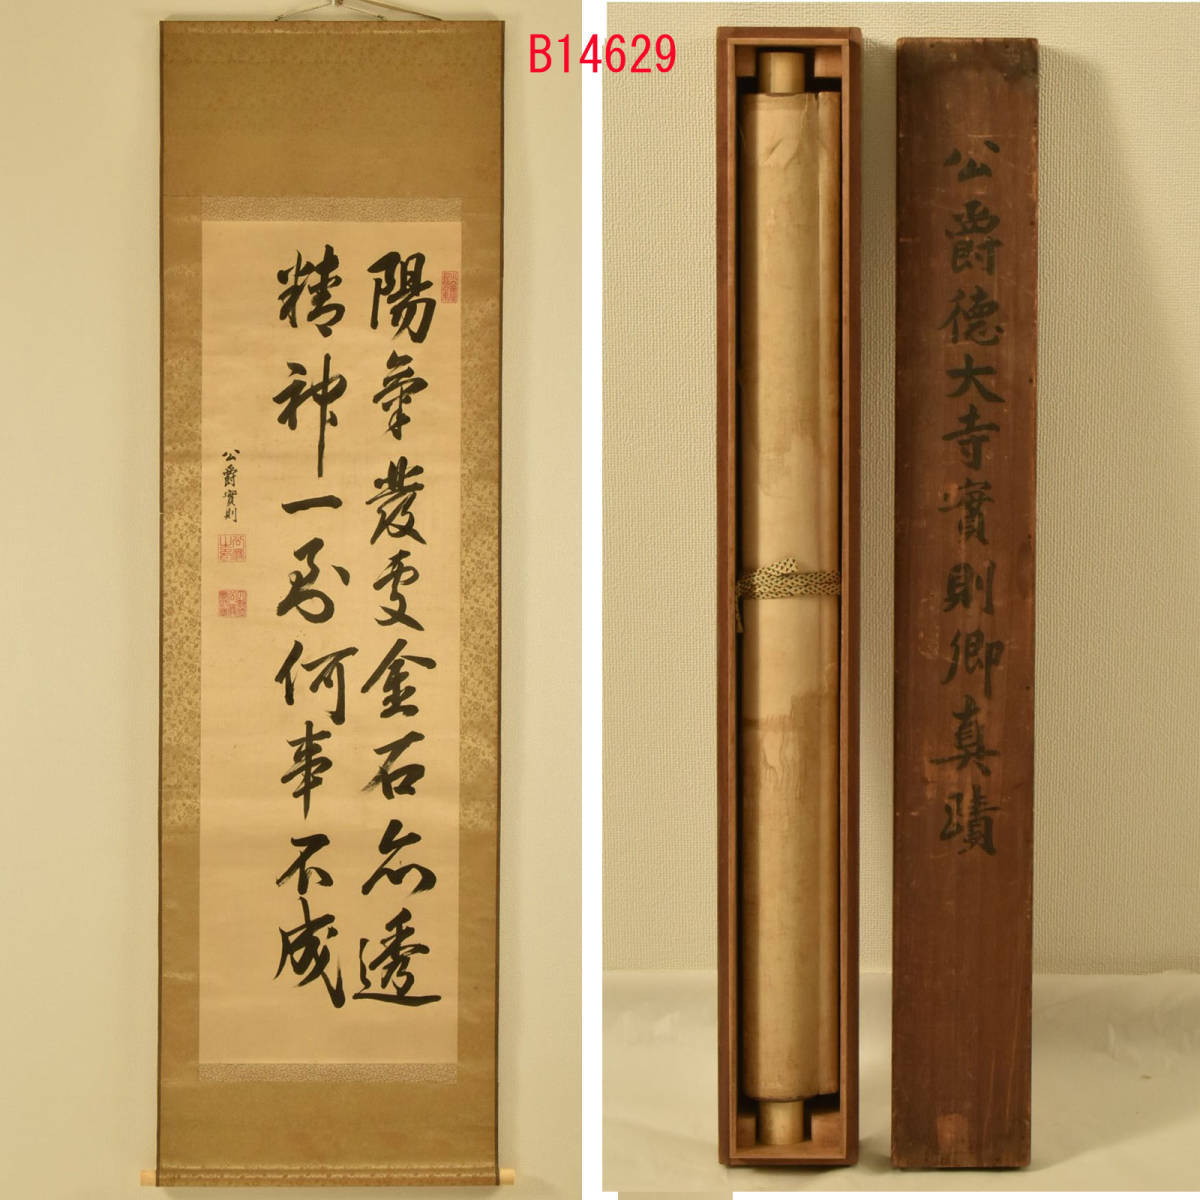 B14629
陽氣發處金石亦透
精神一到何事不成
公爵實則
公爵德大寺實則卿真蹟